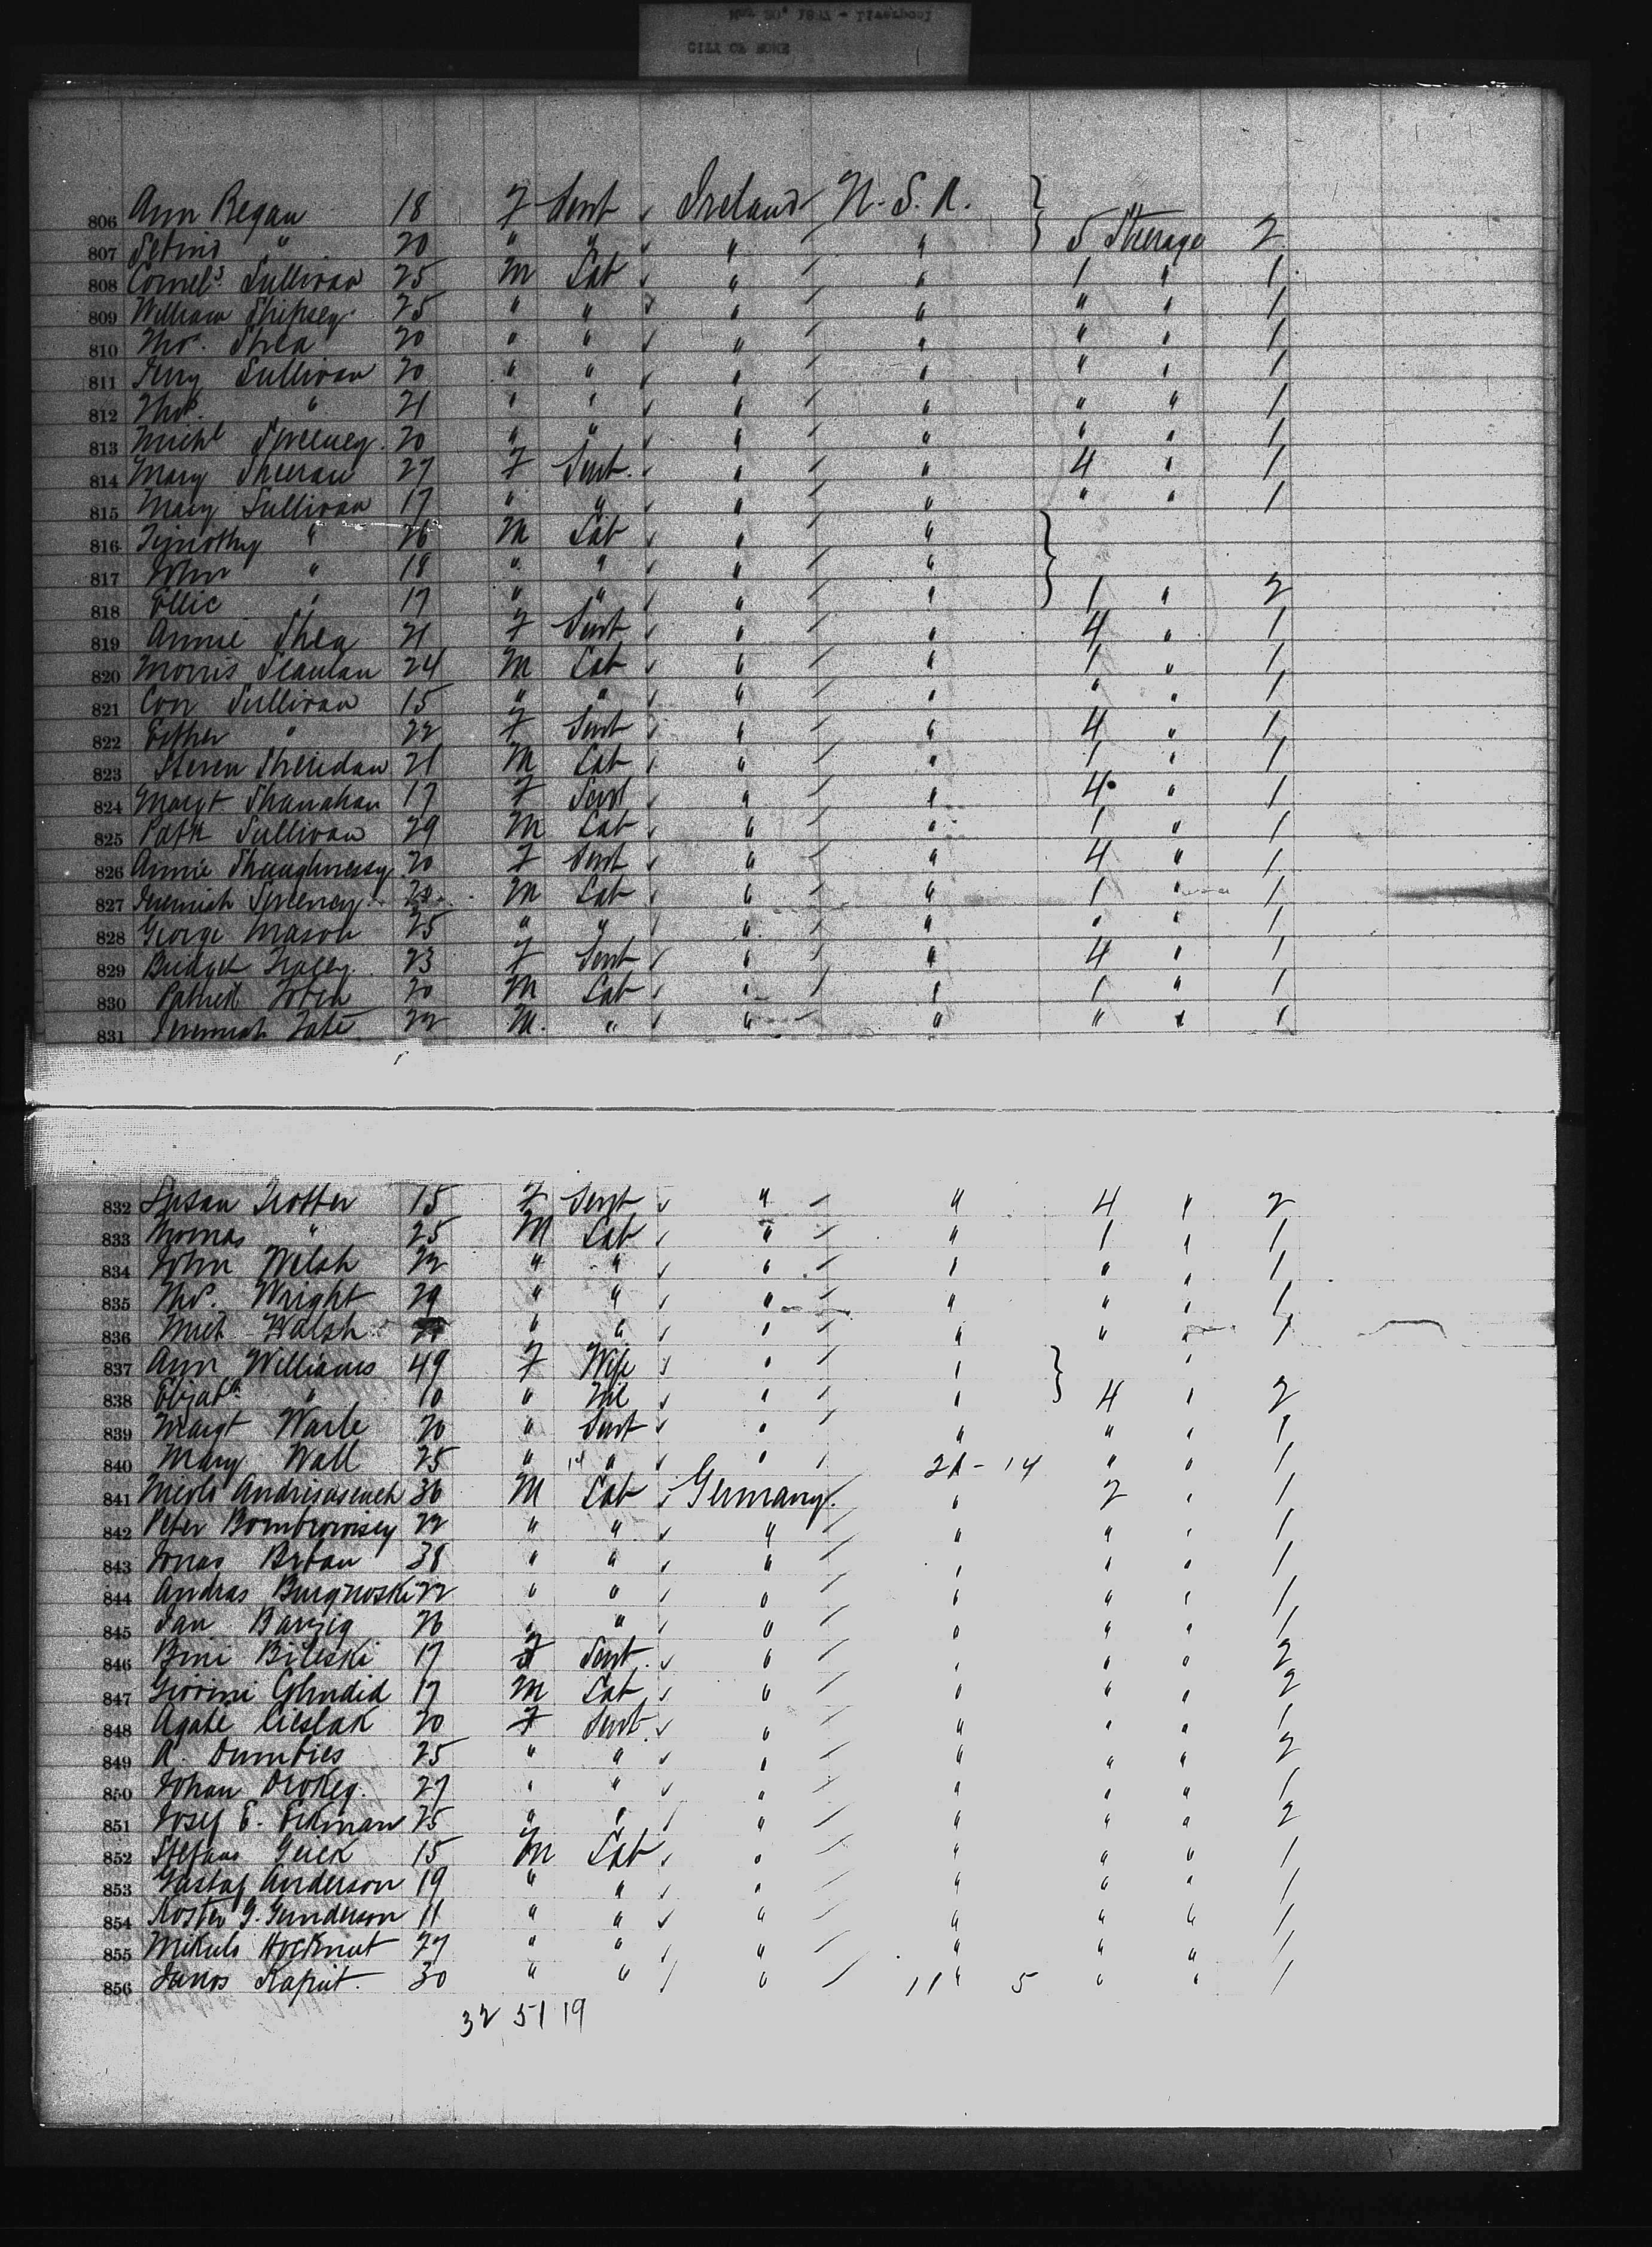 CITY OF ROME
806 Ann Regan 18 F Servt Ireland U.S.A.
807 " 20 " " " " 5 Steerage 2
808 Cornels Sullivan 25 M Lab " " 1 " 1
809 William Shipsey 25 " " " " " " 1
810 Thos. Shea 20 " " " " " " 1
811 Jerry Sullivan 20 " " " " " " 1
812 Thos. " 21 " " " " " " 1
813 Michl Sweeney 20 " " " " " " 1
814 Mary Sheeran 27 F Servt " " 4 " 1
815 Mary Sullivan 17 " " " " " " 1
816 Timothy " 26 M Lab " "
817 John " 18 " " " "
818 Ellie " 17 " " " " 1 " 2
819 Annie Shea 21 F Servt " " 4 " 1
820 Morris Scanlan 24 M Lab " " 1 " 1
821 Con Sullivan 15 " " " " " " 1
822 Esther " 22 F Servt " " 4 " 1
823 Steven Sheridan 21 M Lab " " 1 " 1
824 Margt Shanahan 17 F Servt " " 4 " 1
825 Patk Sullivan 29 M Lab " " 1 " 1
826 Annie Shaughnessy 20 F Servt " " 4 " 1
827 Jeremiah Sweeney M Lab " " 1 " 1
828 George Mason 25 " " " " " " 1
829 Bridget Tracey 23 F Servt " " 4 " 1
830 Patrick Tobin 20 M Lab " " 1 " 1
831 Jeremiah Tate 22 M. " " " " " 1
832 Susan Trotter 15 F Servt " " 4 " 2
833 Thomas " 25 M Lab " " 1 " 1
834 John Welsh 22 " " " " " " 1
835 Thos. Wright 29 " " " " " " 1
836 Mich Walsh " " " " " " 1
837 Ann Williams 49 F Wife " " "
838 Elizabth " 10 " Nil " " 4 " 2
839 Margt Warle 20 " Servt " " " " 1
840 Mary Wall 25 " 14 " " 21 - 14 " " 1
841 36 M Lab Germany. " 2 " 1
842 Peter 22 " " " " " " 1
843 Jonas Brban 38 " " " " " " 1
844 Andras Burgnoski 22 " " " " " " 1
845 Jan Banzig 26 " " " " " " 1
846 Bini Bileski 17 F Servt " " " " 2
847 17 M Lab " " " " 2
848 Agate Cieslak 20 F Servt " " " " 1
849 A. Dumbies 25 " " " " " " 2
850 Johan 27 " " " " " " 1
851 Josef E. Eckman 25 " " " " " " 2
852 Stefans Geick 15 M Lab " " " " 1
853 Gustaf Anderson 19 " " " " " " 1
854 G. Gunderson 11 " " " " " " 1
855 Mikuls Hocknut 27 " " " " " " 1
856 Janos Kaput 30 " " " 11 " 5 " " 1
32 51 19